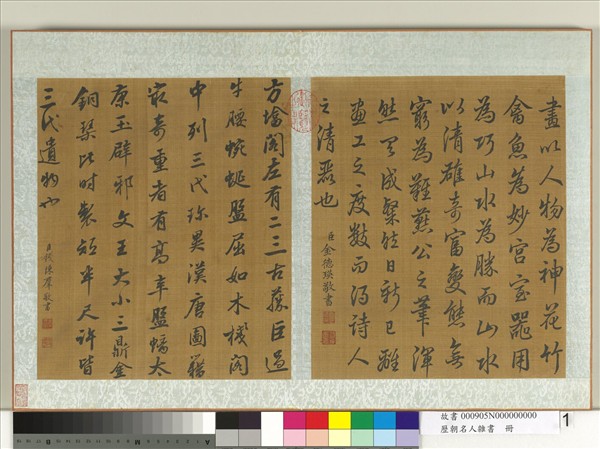 畫以人物為神花竹
禽魚為妙宮室器用
為巧山水為勝而山水
以清雄奇富變態無
窮為難燕公之筆渾
然天成粲然日新已離
畫工之度數而得詩人
之清麗也
臣金德瑛敬書
方墖閣左有二三古藤巨過
牛腰蜿蜒盤屈如木棧閣
中列三代珍異漢唐圖籍
最奇重者有高辛盤螭太
康玉辟邪文王大小三鼎金
銅琹比時製短半尺許皆
三代遺物也
臣錢陳羣敬書
故書 000905N000000000
歷朝名人雜書 冊
1